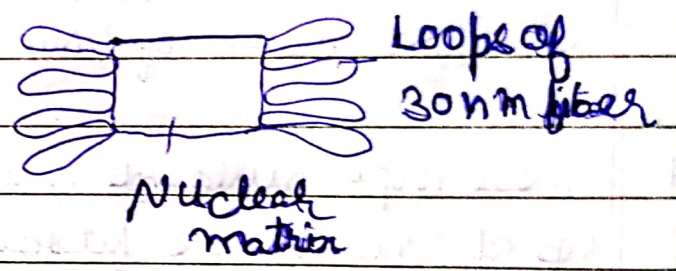 Loops of
30nm fiber
Nuclear
matrix